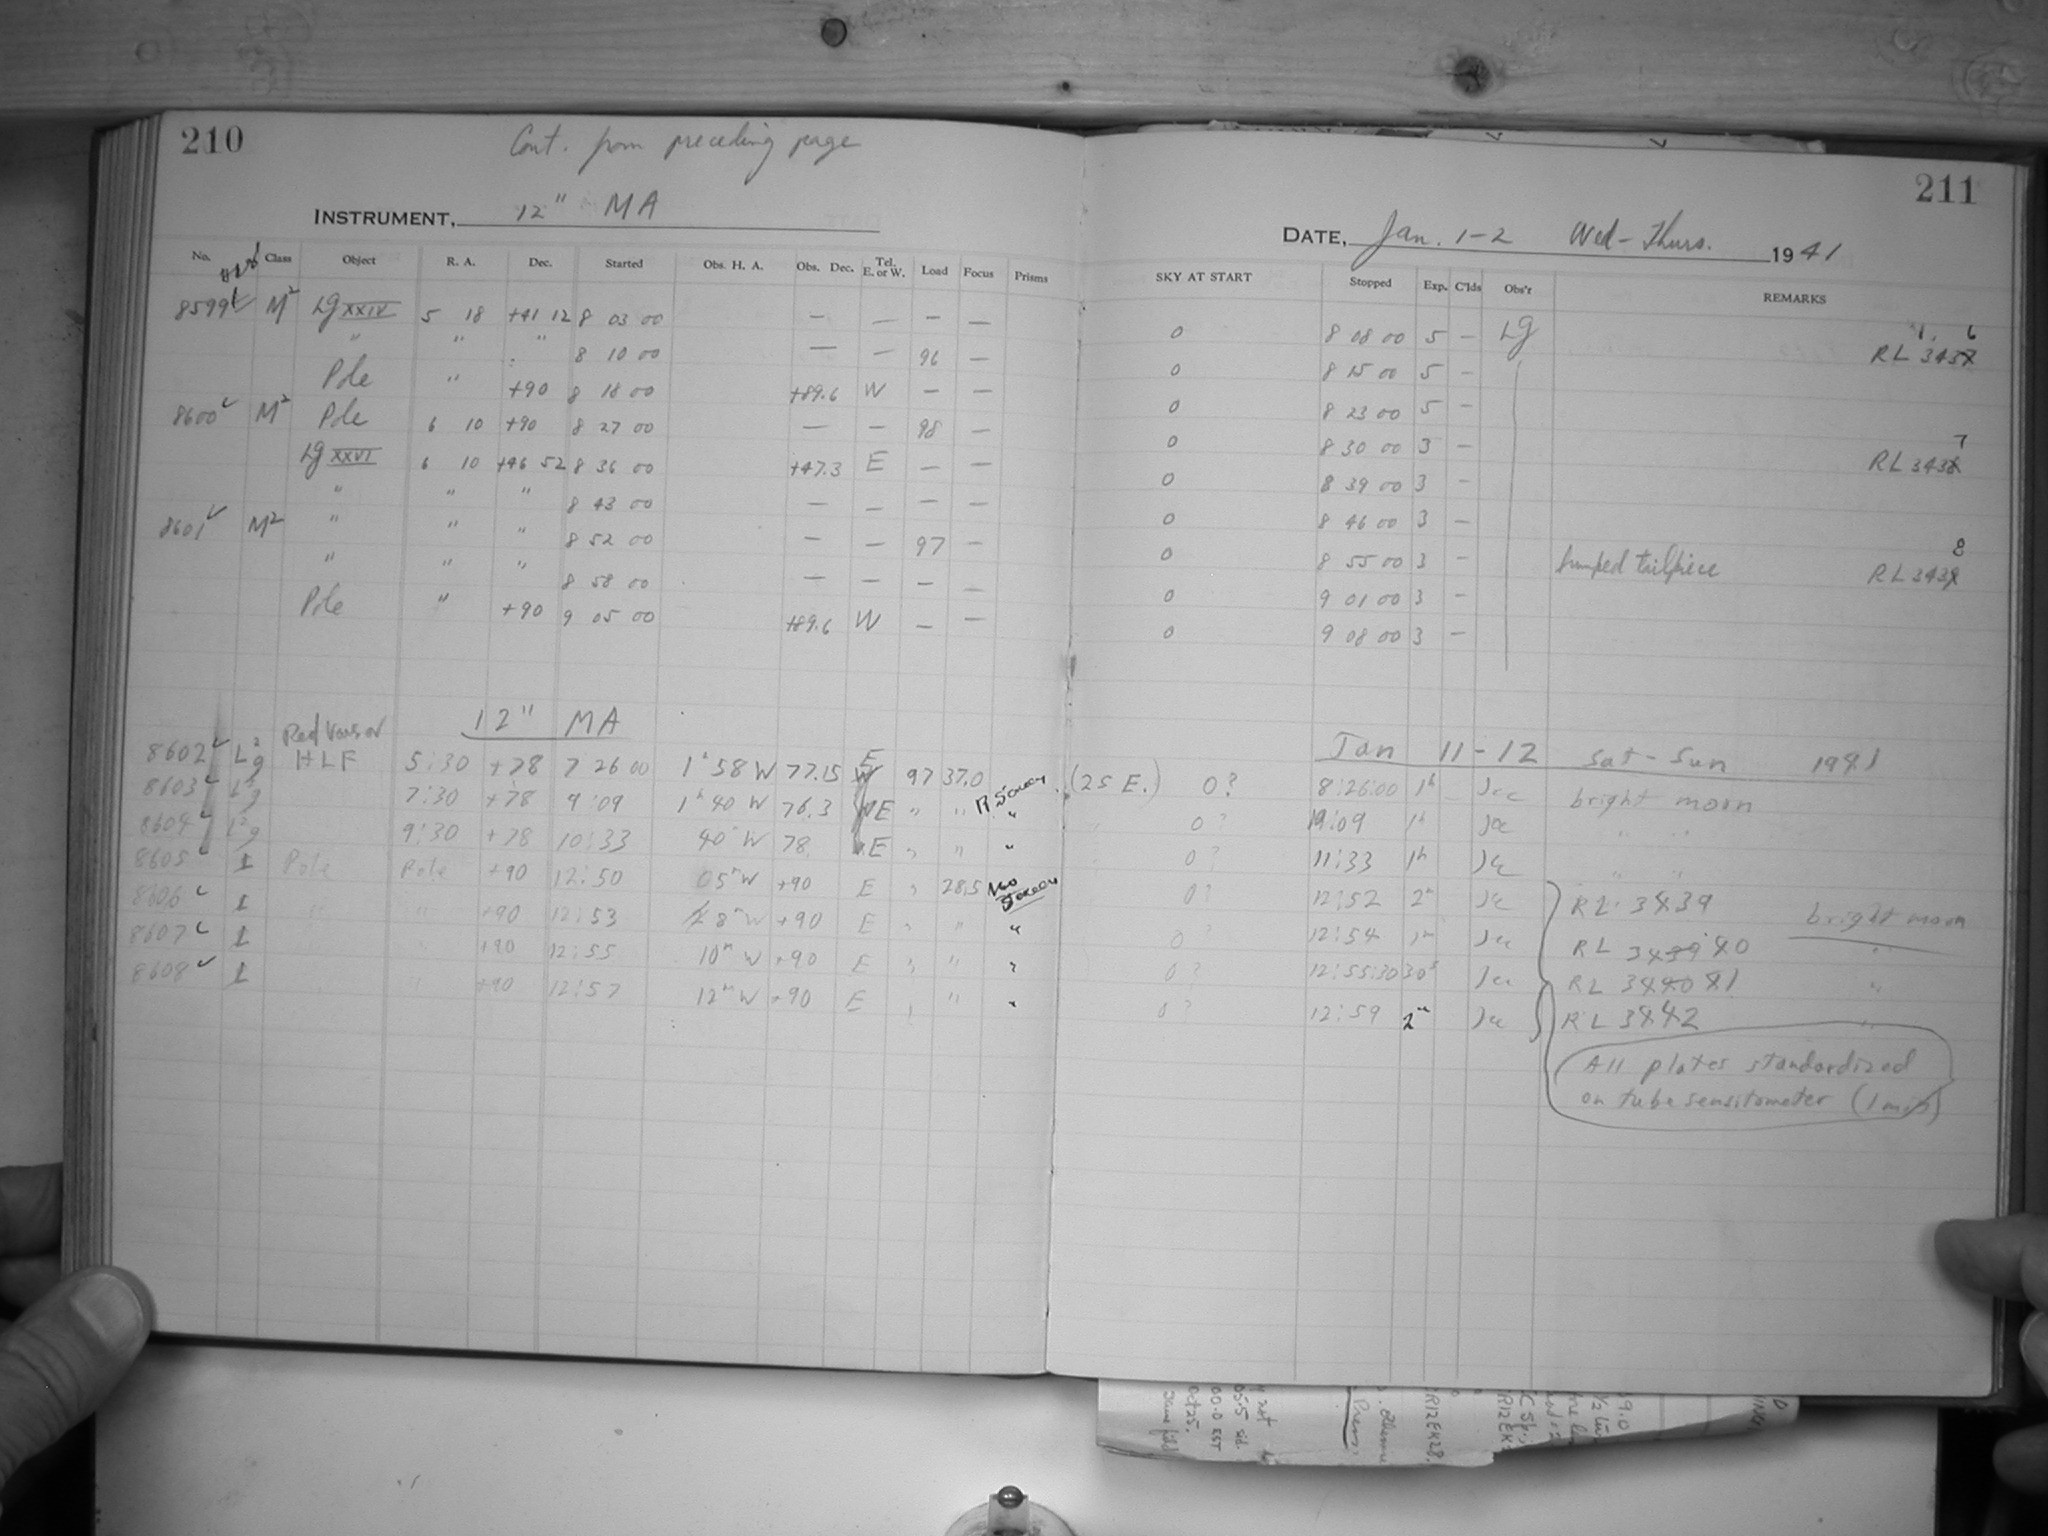 210
Cont. from preceding page
211
INSTRUMENT, 12" MA
DATE, Jan. 1-2 Wed-Thurs. 1941
No. Class Object R. A. Dec. Started Obs. H. A. Obs. Dec. Tel. E. or W. Load Focus Prisms SKY AT START Stopped Exp. C'lds Obs'r REMARKS
8599 M² Lg XXIV 5 18 +41 12 8 03 00 — — — — 0 8 08 00 5 — Lg RL 3436
" " " 8 10 00 — — 96 — 0 8 15 00 5 —
Pole " +90 8 18 00 +89.6 W — — 0 8 23 00 5 —
8600 M² Pole 6 10 +90 8 27 00 — — 98 — 0 8 30 00 3 — RL 3437
Lg XXVI 6 10 +46 52 8 36 00 +47.3 E — — 0 8 39 00 3 —
" " " 8 43 00 — — — — 0 8 46 00 3 —
8601 M² " " " 8 52 00 — — 97 — 0 8 55 00 3 — bumped tailpiece RL 3438
" " " 8 58 00 — — — — 0 9 01 00 3 —
Pole " +90 9 05 00 +89.6 W — — 0 9 08 00 3 —
12" MA
Jan 11-12 Sat-Sun 1941
8602 L²g HLF 5:30 +78 7 26 00 1ʰ58 W 77.15 E 97 37.0 R Screen (25 E.) 0? 8:26:00 1ʰ bright moon
8603 L²g 7:30 +78 9:09 1ʰ40 W 76.3 E " " " 0? 10:09 1ʰ " "
8604 L²g 9:30 +78 10:33 40ᵐ W 78 E " " " 0? 11:33 1ʰ " "
8605 I Pole Pole +90 12:50 05ᵐ W +90 E " 28.5 No Screen 0? 12:52 2ᵐ RL 3439 bright moon
8606 I " +90 12:53 8ᵐ W +90 E " " " 0? 12:54 1ᵐ RL 3440 "
8607 I " +90 12:55 10ᵐ W +90 E " " " 0? 12:55:30 30ˢ RL 3441 "
8608 I " +90 12:57 12ᵐ W +90 E " " " 0? 12:59 2ᵐ RL 3442 "
All plates standardized
on tube sensitometer (1 min)